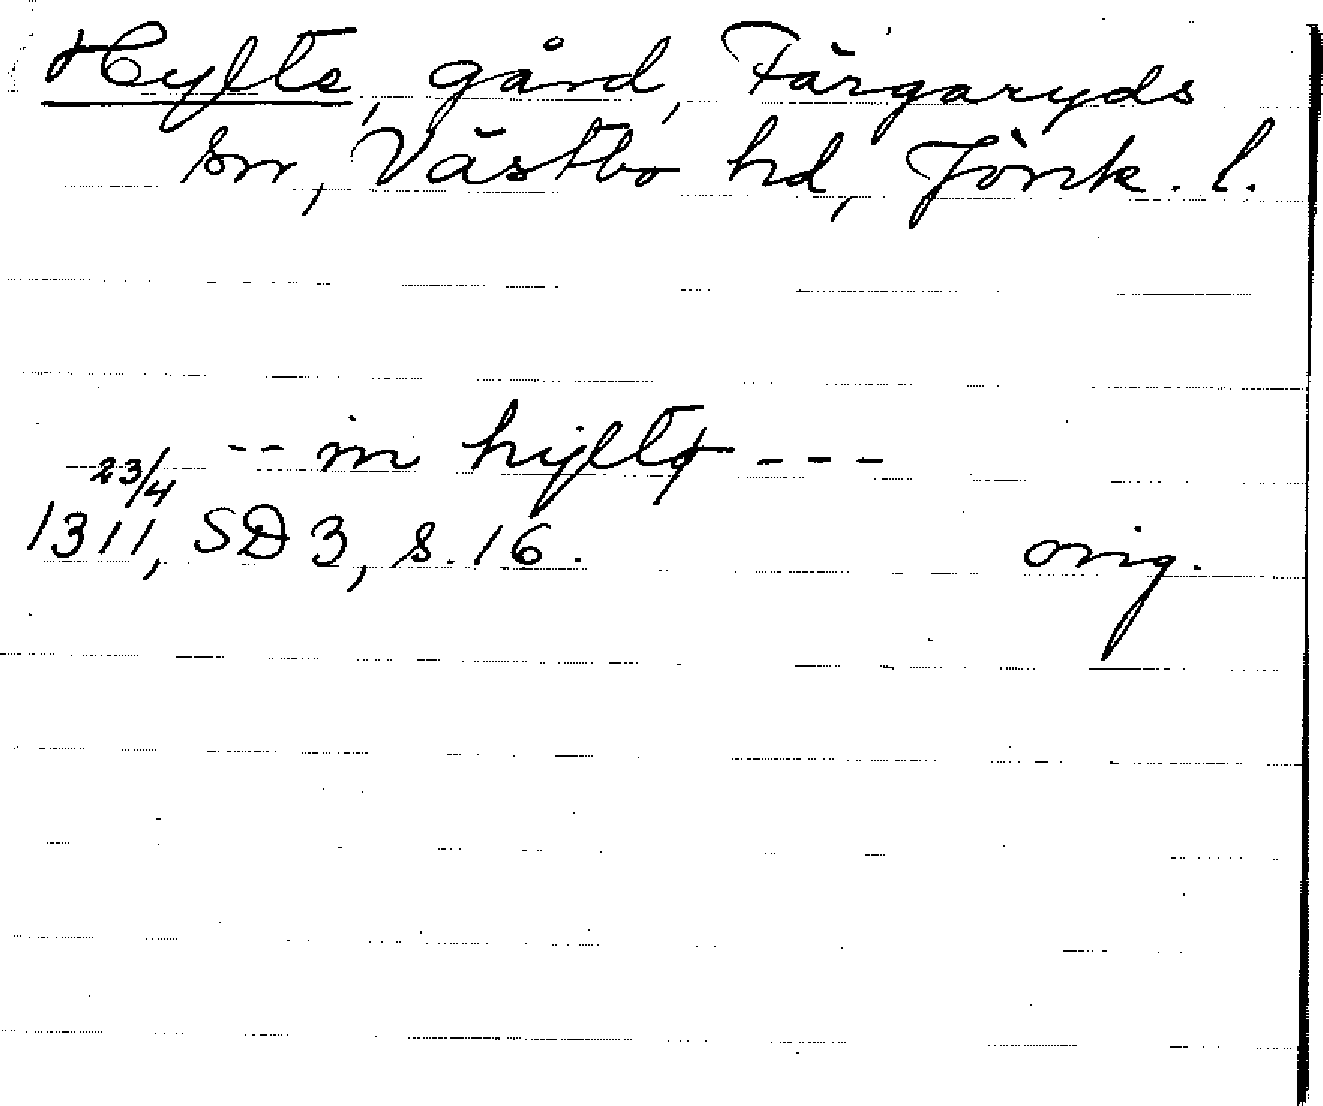 Hylte, gård, Färgaryds
sn, Västbo hd, Jönk. l.
-- in hyltø ---
23/4
1311, SD 3, s. 16. orig.